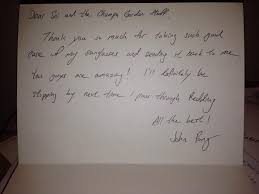 Dear Sir and the Champs Garden Staff,
Thank you so much for taking such good
care of my sunglasses and sending it back to me
You guys are amazing! I'll definitely be
stopping by next time I pass through Redding
All the best!
John